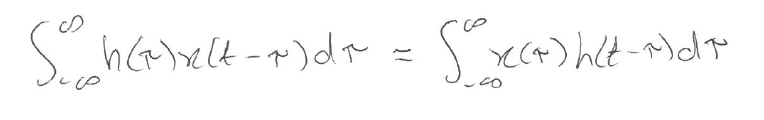 ∫_{-∞}^{∞} h(τ)x(t-τ)dτ = ∫_{-∞}^{∞} x(τ)h(t-τ)dτ